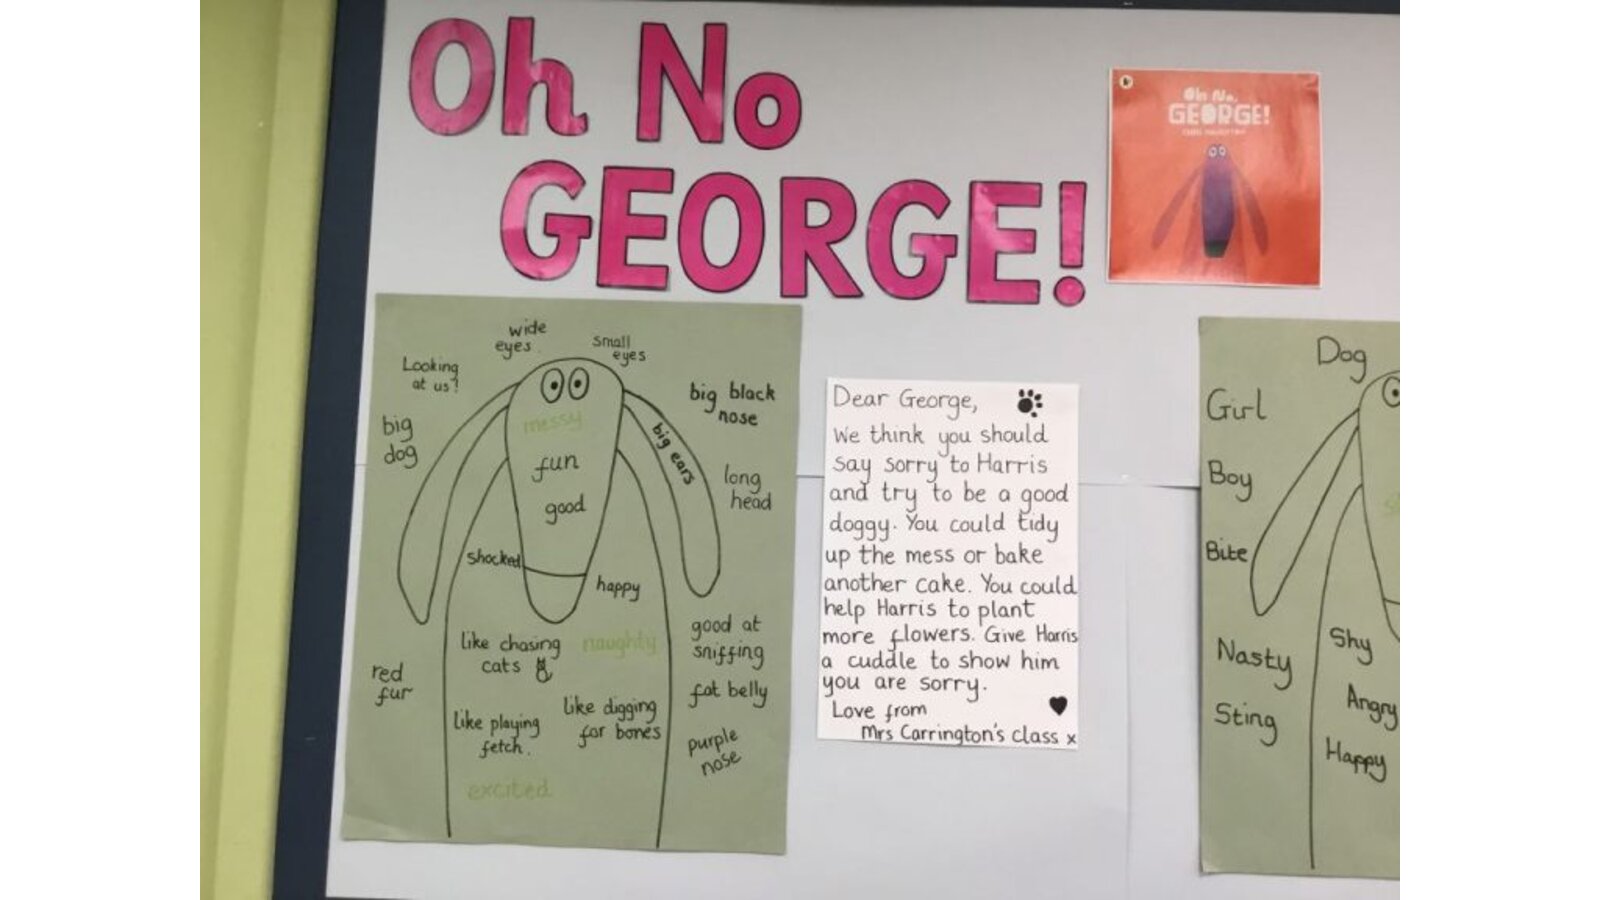 Oh No
GEORGE!
Oh No,
GEORGE!
wide
eyes
small
eyes
Looking
at us!
big
dog
messy
fun
good
big ears
big black
nose
long
head
shocked
happy
like chasing
cats
naughty
good at
sniffing
red
fur
like playing
fetch.
like digging
for bones
fat belly
purple
nose
excited
Dear George,
We think you should
say sorry to Harris
and try to be a good
doggy. You could tidy
up the mess or bake
another cake. You could
help Harris to plant
more flowers. Give Harris
a cuddle to show him
you are sorry.
Love from
Mrs Carrington's class x
Dog
Girl
Boy
Bite
Nasty
Sting
Shy
Angry
Happy